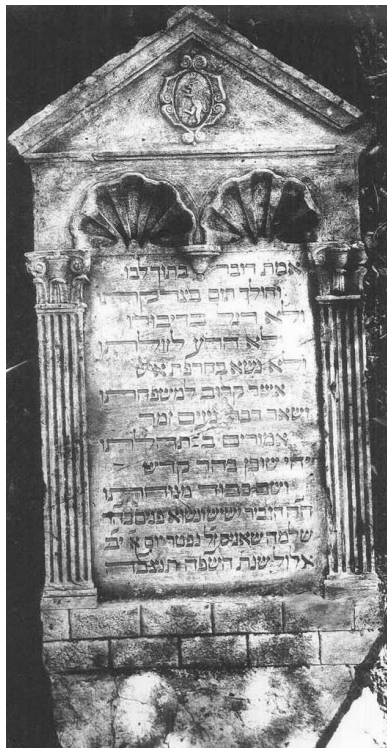 אמת דובר בתוך לבו
והולך תום בצדקתו
ולא רגל בדיבורו
ולא הרע לזולתו
ולא נשא בחרפת איש
אשר קרוב למשפחתו
ושאר דברי נעים זמר
אמורים בתהלתו
יהי שוכן בהר קדש
ושם כבוד מנוחתו
ישיש ונשוא פנים
שלמה נפטר יום א יב
אלול שנת השפה תנצבה